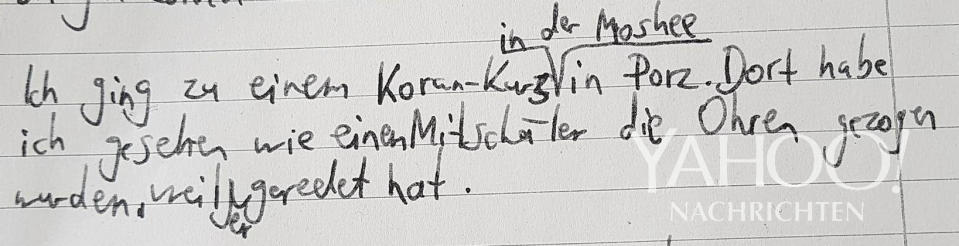 in der Moshee
Ich ging zu einem Koran-Kurs in Porz. Dort habe
ich gesehen wie einen Mitschüler die Ohren gezogen
wurden, weil er geredet hat.
YAHOO!
NACHRICHTEN